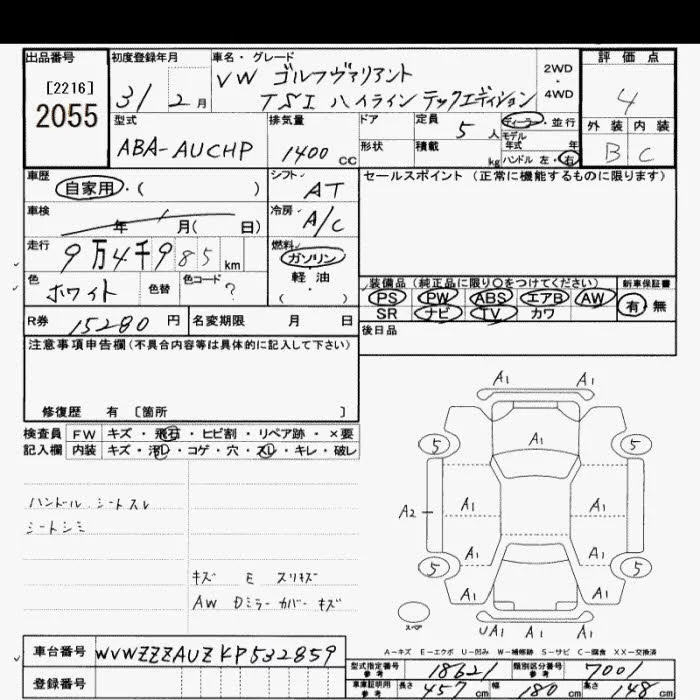 出品番号
[2216]
2055
初度登録年月
31 2月
車名・グレード
VW ゴルフヴァリアント
TSI ハイライン テックエディション
2WD
・
4WD
評価点
4
外装 内装
B C
型式
ABA-AUCHP
排気量
1400 cc
ドア
形状
定員
5人
積載
kg
ディーラー・並行
モデル
年式 年
ハンドル 左・右
車歴
自家用・( )
シフト
AT
車検
年 月( 日)
冷房
A/C
走行
9万4千985km
燃料
ガソリン
軽・油
( )
色
ホワイト
色替
色コード
?
R券 15280円
名変期限 月 日
セールスポイント(正常に機能するものに限ります)
装備品(純正品に限り〇をつけてください)
PS PW ABS エアB AW
SR ナビ TV カワ
新車保証書
有・無
後日品
注意事項申告欄(不具合内容等は具体的に記入して下さい)
修復歴 有 [箇所 ]
検査員 FW キズ・飛石・ヒビ割・リペア跡・×要
記入欄 内装 キズ・汚レ・コゲ・穴・スレ・キレ・破レ
ハンドル.シートスレ
シートシミ
キズ E スリキズ
AW Dミラーカバーキズ
A1 A1
A1
5 5
A2 A1 A1
A1 A1
5 5
A1 A1
スペア
UA1 A1 A1
A-キズ E-エクボ U-凹み W-補修跡 S-サビ C-腐食 XX-交換済
車台番号 WVWZZZAUZKP532859
登録番号
型式指定番号
参考
18621
類別区分番号
参考
7001
車庫証明用
参考
長さ 457cm 幅 180cm 高さ 148cm